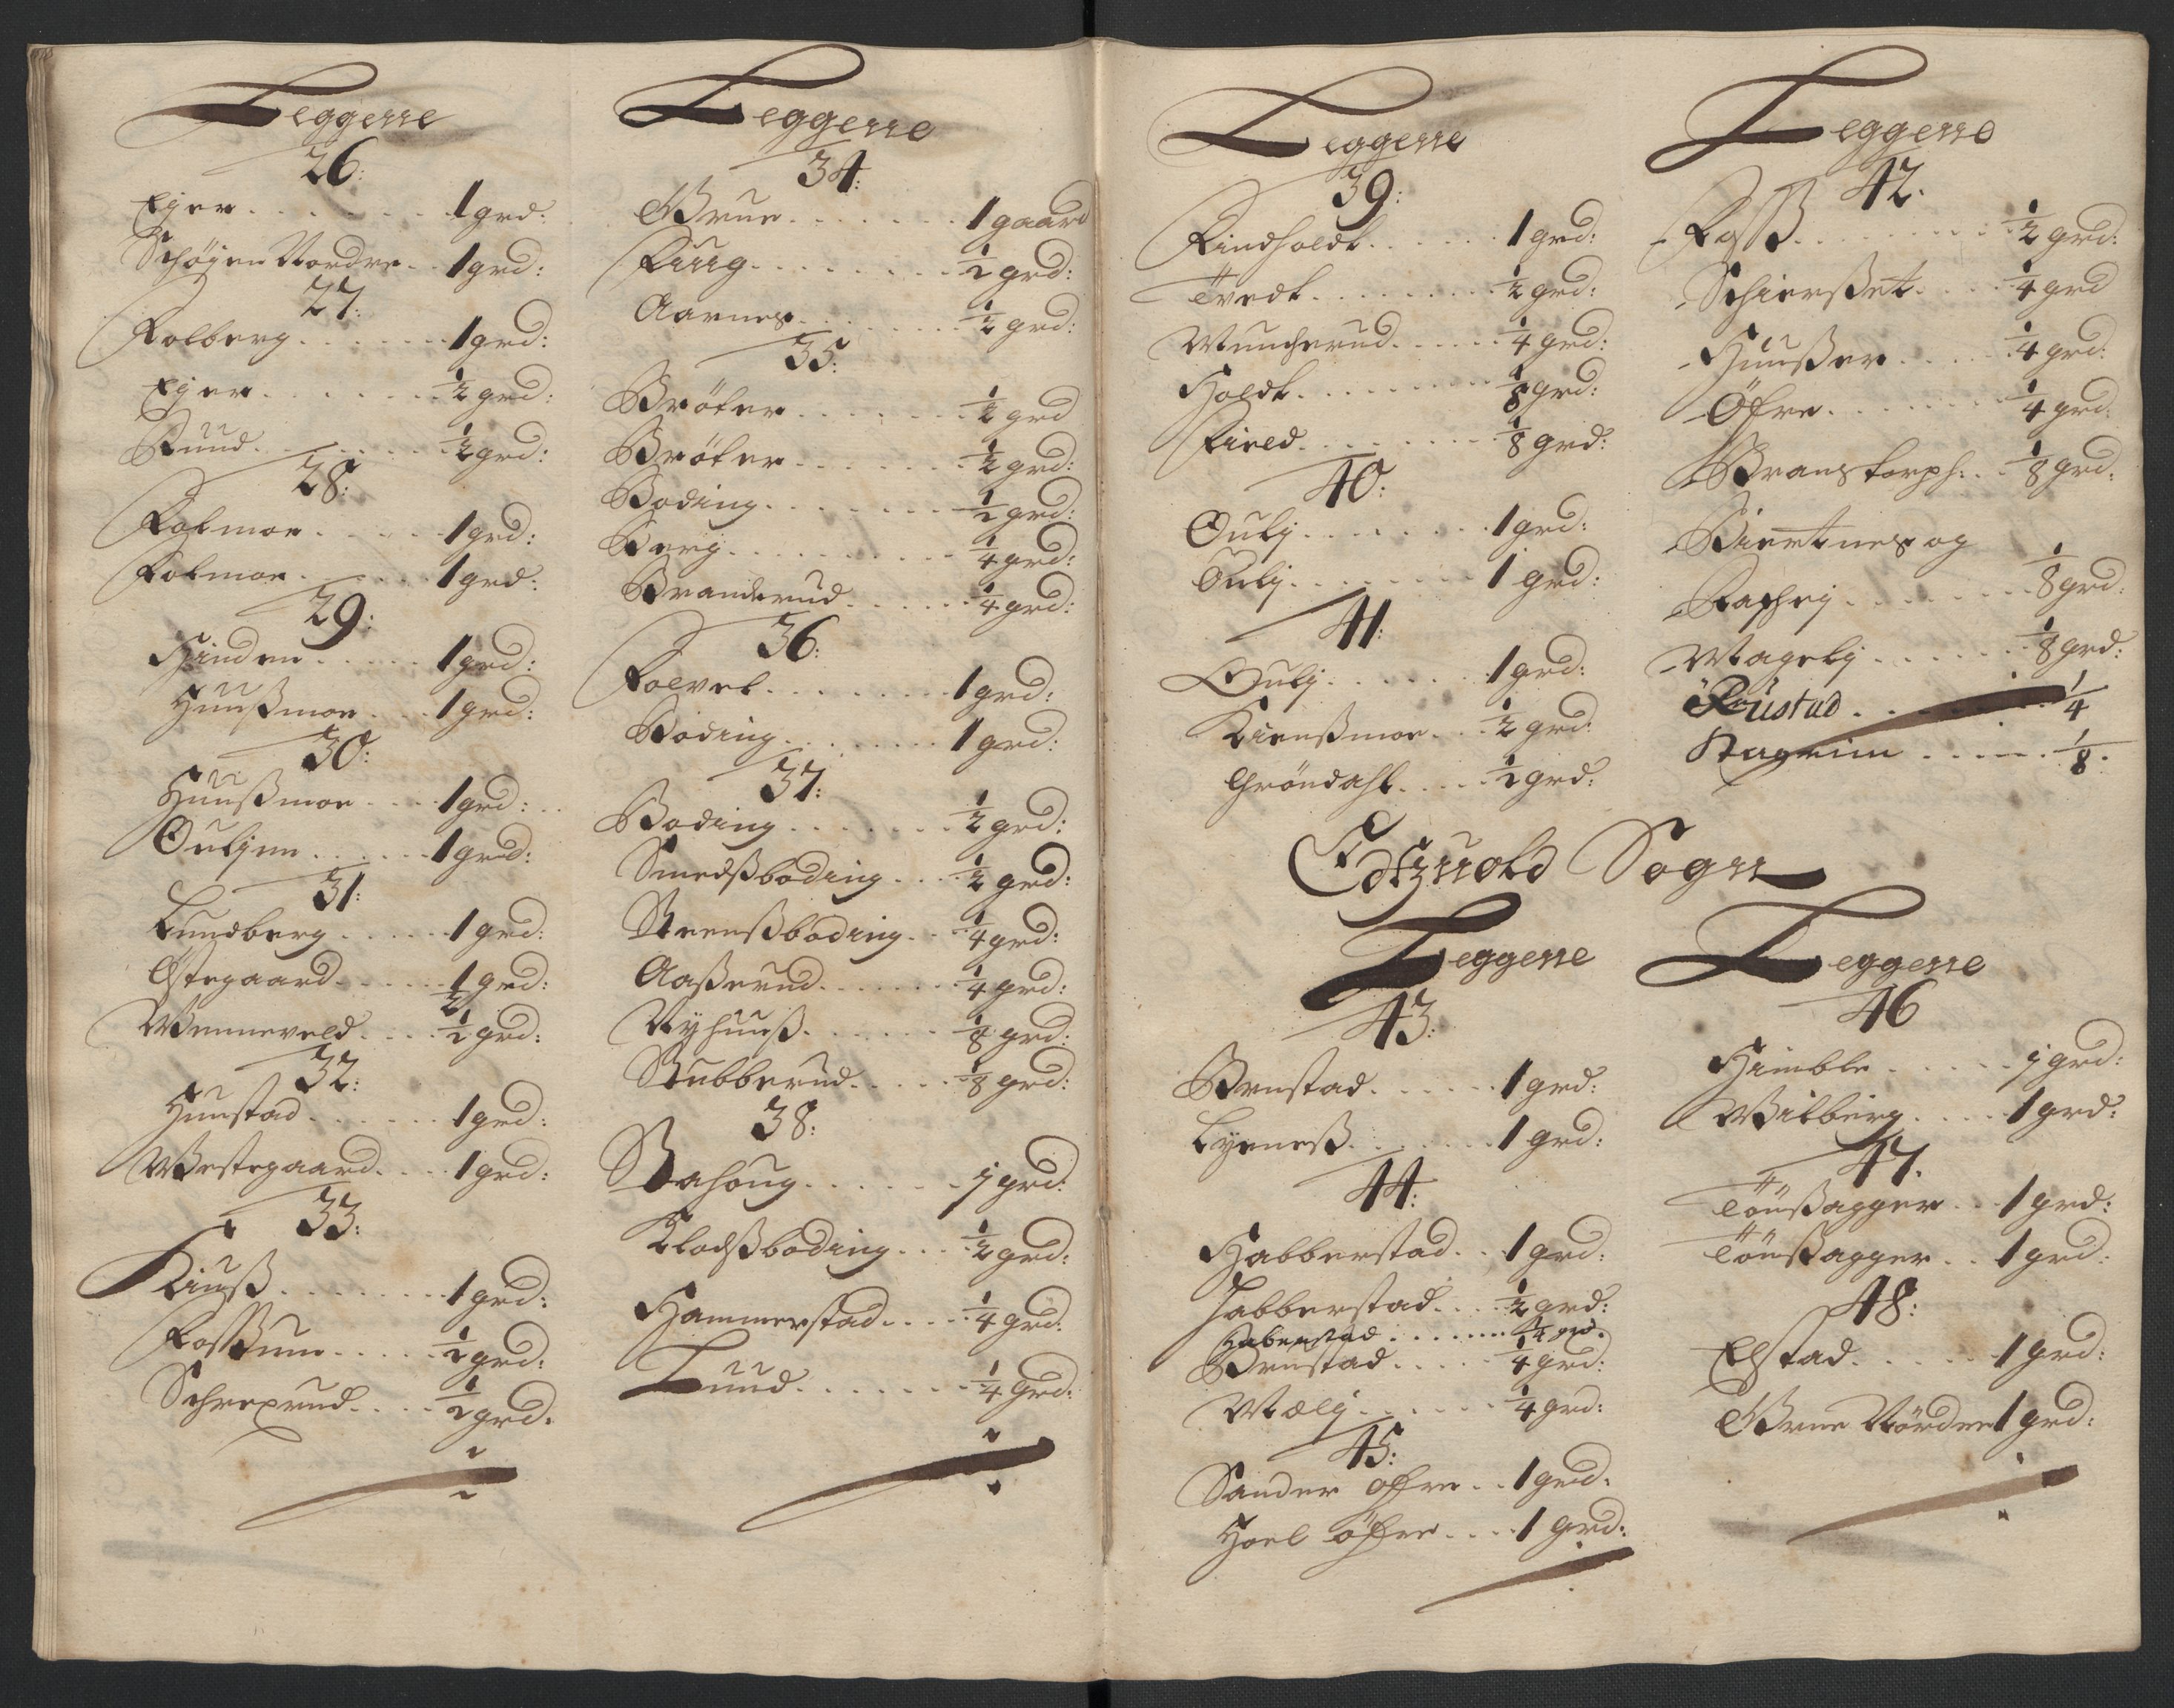 Leggene
26:
Ejer . . . . . . . 1 grd:
Schøyen Nordre . . 1 grd:
27:
Folberg . . . . . . 1 grd:
Ejer . . . . . . . ½ grd:
Ruud . . . . . . . ½ grd:
28:
Folmoe . . . . . 1 grd:
Folmoe . . . . . 1 grd:
29:
Hinden . . . . . 1 grd:
Huußmoe . . . 1 grd:
30:
Huußmoe . . . 1 grd:
Oulien . . . . . . 1 grd:
31:
Lundberg . . . . . 1 grd:
Østegaard . . . . . 1 grd:
½
Wenneveld . . . . ½ grd:
32:
Huustad . . . . . . 1 grd:
Westegaard . . . . 1 grd:
33:
Kiuß . . . . . . . 1 grd:
Foßum . . . . . ½ grd:
Schrexrud . . . . ½ grd:
Leggene
34:
Grue . . . . . . . 1 gaard
Ring . . . . . . . . ½ grd:
Aarnes . . . . . . . ½ grd:
35:
Brøter . . . . . . . ½ grd
Brøter . . . . . . . ½ grd:
Boding . . . . . . . ½ grd:
Berg . . . . . . . . ¼ grd:
Branderud . . . . . ¼ grd:
36:
Folvel . . . . . . . 1 grd:
Boding . . . . . . . 1 grd:
37:
Boding . . . . . . . ½ grd:
Smedßboding . . . ½ grd:
Steenßboding . . ¼ grd:
Aaßerud . . . . . . ¼ grd:
Nyhuuß . . . . . . ⅛ grd:
Stubberud . . . . . ⅛ grd:
38:
Bahoug . . . . . . 1 grd:
Klodßboding . . . ½ grd:
Hammerstad . . . . ¼ grd:
Luud . . . . . . . ¼ grd:
Leggene
39:
Rindholdt . . . . . 1 grd:
Tvedt . . . . . . . . ½ grd:
Muncherud . . . . . ¼ grd:
Holdt . . . . . . . ⅛ grd:
Field . . . . . . . ⅛ grd:
40:
Ouly . . . . . . . 1 grd:
Ouly . . . . . . . . 1 grd:
41:
Ouly . . . . . . . 1 grd:
Kienßmoe . . . ½ grd:
Grøndahl . . . . ½ grd:
Leggene
42.
Foß . . . . . . . . ½ grd:
Schierßet . . . . ¼ grd
Huußer . . . . . ¼ grd:
Øfre . . . . . . . ¼ grd:
Branstorph . . ⅛ grd:
Biertnes og
Raphey . . . . . . . ⅛ grd:
Magely . . . . . . . ⅛ grd:
Røustad . . . . . . . ¼
Stagrim . . . . . ⅛.
Edtzuold Sogn
Leggene
43:
Brustad . . . . . . 1 grd:
Lyeneß . . . . . . . 1 grd:
44:
Habberstad . . 1 grd:
Habberstad . . . . ½ grd:
Haberstad . . . . . . . ¼ grd.
Brustad . . . . . ¼ grd:
Mæly . . . . . . ¼ grd:
45:
Sander Øfre . . 1 grd:
Hoel øfre . . . . 1 grd:
Leggene
46
Himble . . . . . . 1 grd:
Wilberg . . . . . 1 grd:
47.
Tønßagger . . 1 grd:
Tønßagger . . 1 grd:
48:
Elstad . . . . . . 1 grd:
Grue Nördre 1 grd: